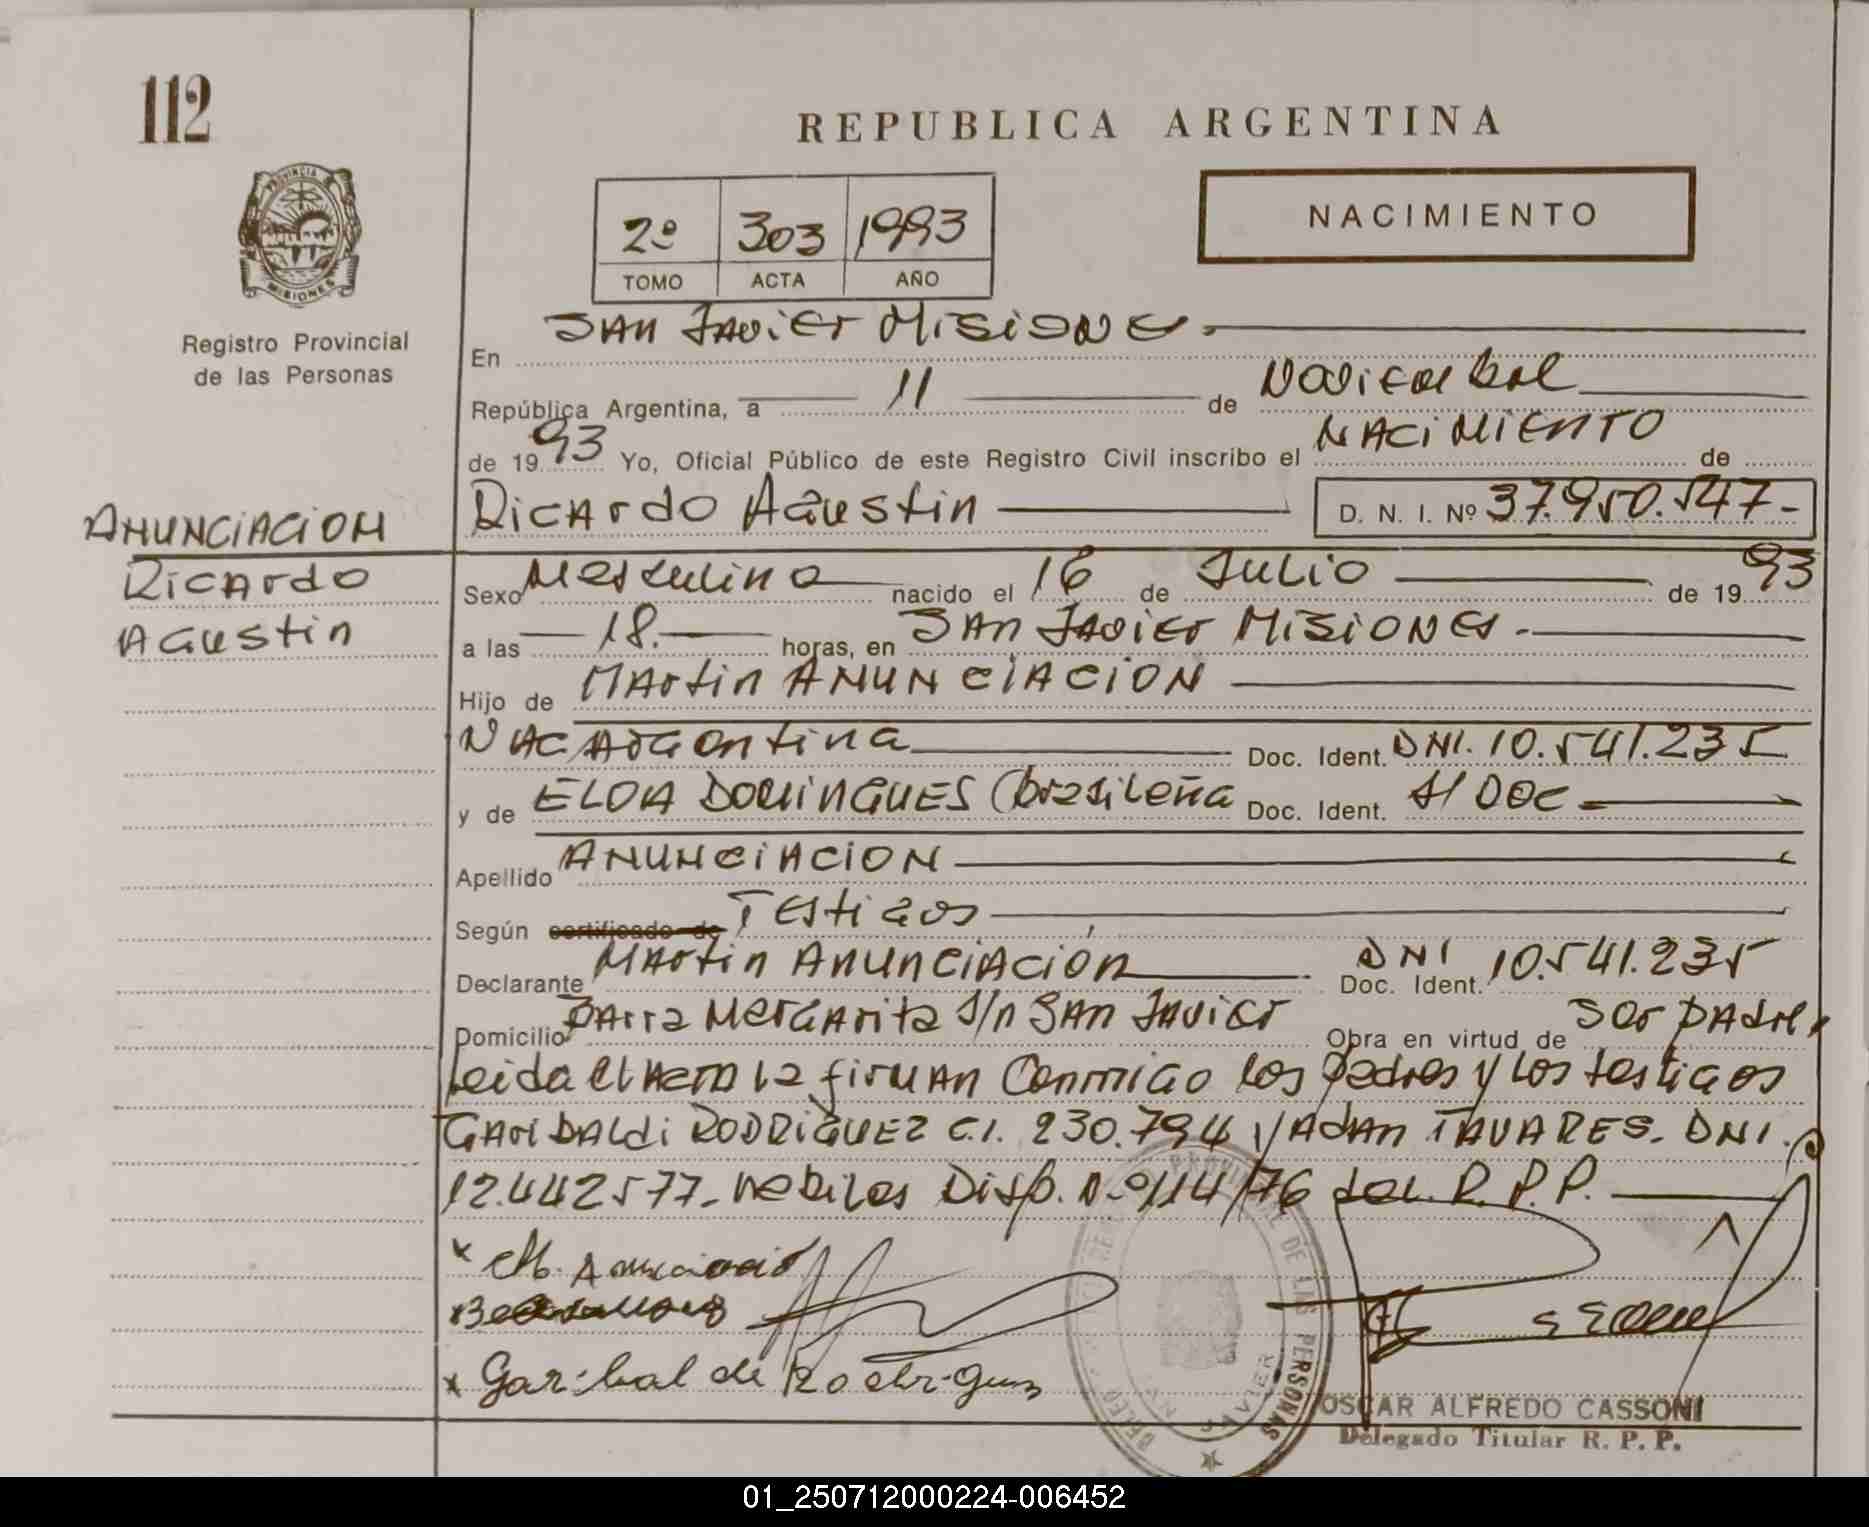 112
REPUBLICA ARGENTINA
PROVINCIA DE MISIONES
Registro Provincial
de las Personas
2º 303 1993
TOMO ACTA AÑO
NACIMIENTO
En San Javier Misiones.
República Argentina, a 11 de Noviembre
de 1993 Yo, Oficial Público de este Registro Civil inscribo el NACIMIENTO de
Ricardo Agustin D. N. I. Nº 37.950.547-
ANUNCIACION
Ricardo
Agustin
Sexo Masculino nacido el 16 de Julio de 1993
a las 18. horas, en San Javier Misiones.
Hijo de Martin ANUNCIACION
Nac Argentina Doc. Ident. DNI. 10.541.235
y de ELOA DOMINGUES (brasileña Doc. Ident. S/ DOC
Apellido ANUNCIACION
Según certificado de Testigos
Declarante Martin Anunciación Doc. Ident. DNI 10.541.235
Domicilio Barra Margarita S/n San Javier Obra en virtud de Ser padre,
Leida el Acta la firman Conmigo los padres y los testigos
GARIBALdi RODRIGUEZ C.I. 230.794 y Adan TAVARES. DNI.
12.442577- habiles Disp. N-º 114/76 del R. P. P.
x M. Anunciació
x Garibal de Rodrigues
OSCAR ALFREDO CASSONI
Delegado Titular R. P. P.
01_250712000224-006452